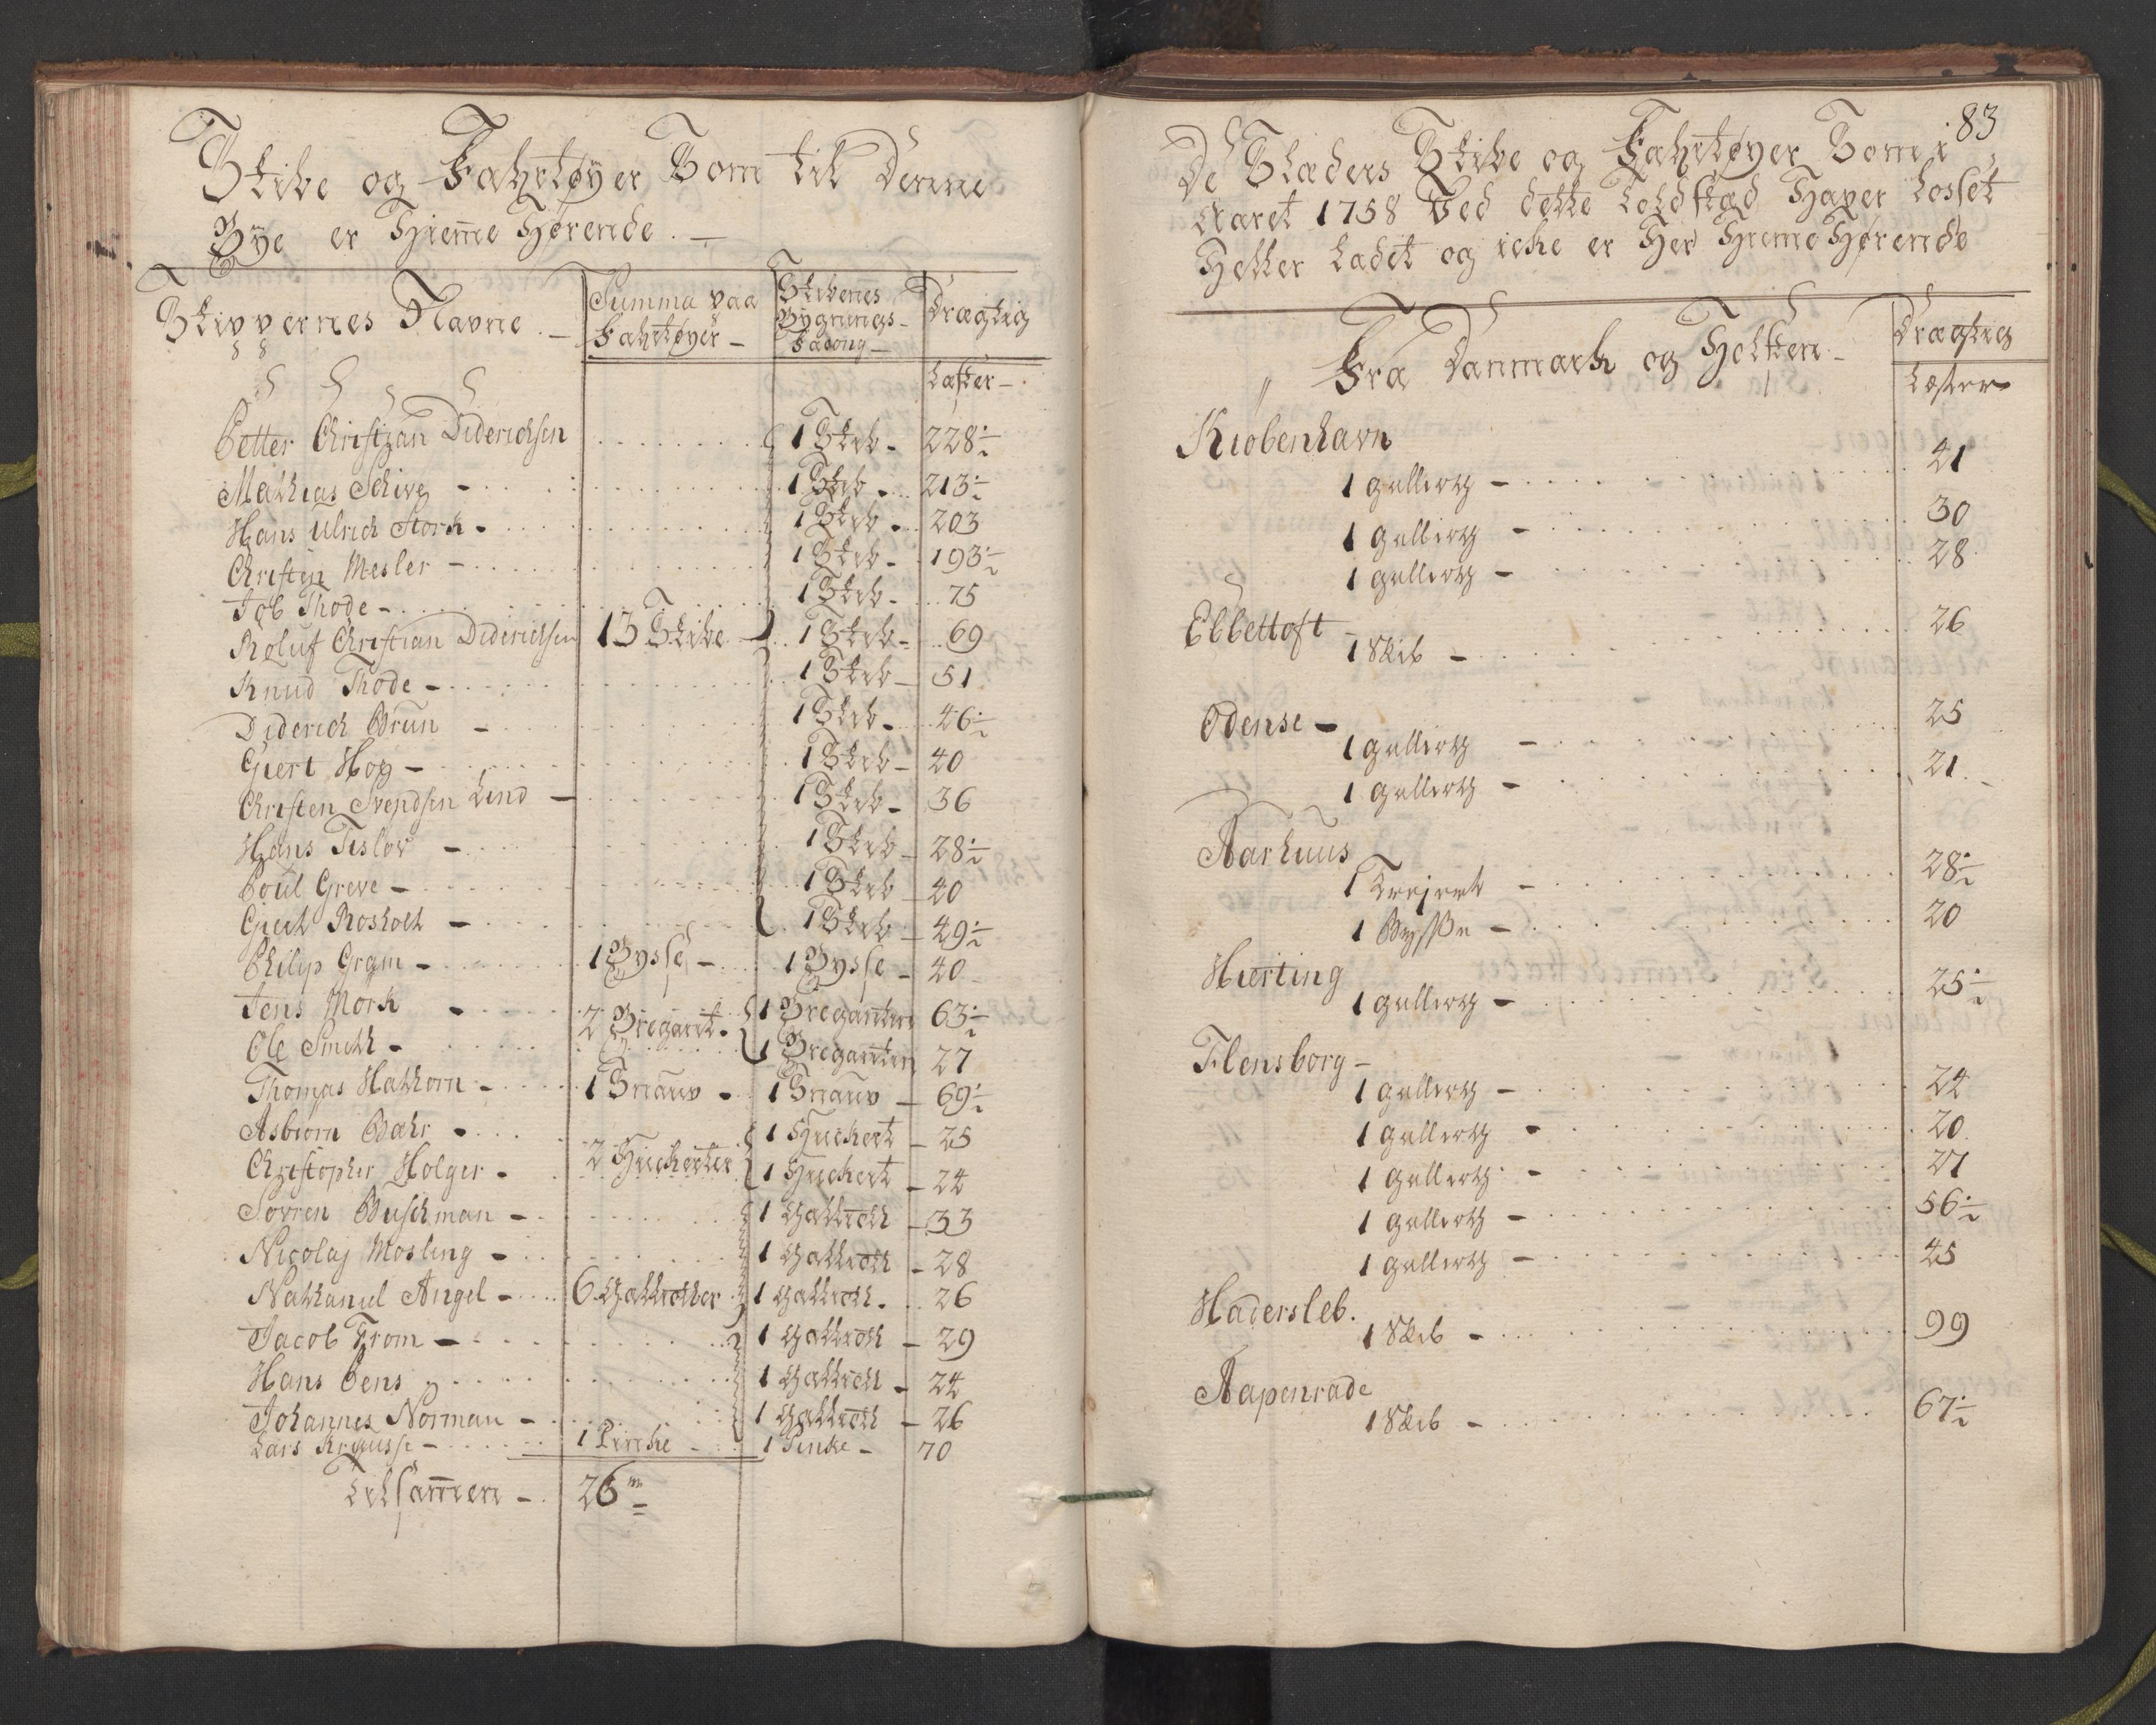 Skibe og Fahrtøyer Som til Denne
Bye er Hiemme Hørende. —
Skippernes Navne. — Summa paa Fahrtøyer — Skibenes Bygnings- Facong — Drægtig
Læster —
Petter Christian Diderichsen 1 Skib - 228 ½
Mathias Schive - 1 Skib - 213 ½
Hans Ulrich Stork - 1 Skib - 203
Christen Mesler - 1 Skib - 193 ½
Job Thode - 1 Skib - 75
Roluf Christian Diderichsen 13 Skibe 1 Skib - 69
Knud Thode - 1 Skib - 51
Diderich Brun - 1 Skib - 46 ½
Giert Hoy - 1 Skib - 40
Christen Svendsen Lind - 1 Skib - 36
Hans Teslov - 1 Skib - 28 ½
Poul Greve - 1 Skib 40
Giert Rosholt - 1 Skib - 49 ½
Philip Gram - 1 Bysse - 1 Bysse - 40
Jens Mork - 2 Bregant. 1 Bregantin 63 ½
Ole Smith - 1 Bregantin 27
Thomas Hathorn - 1 Snauv - 1 Snauv - 69 ½
Asbiørn Bahr - 1 Huckert - 25
Christopher Holger - 2 Huckerter 1 Huckert - 24
Sørren Buschman - 1 Gallioth - 33
Nicolaj Mosling - 1 Gallioth - 28
Nathaniel Angel - 6 Galliother 1 Gallioth - 26
Jacob From - 1 Gallioth - 29
Hans Bens 1 Gallioth - 24
Johannes Norman - 1 Gallioth - 26
Lars Krausse - 1 Pincke - 1 Pinke - 70
Tilsammen - 26
83
De Stæders Skibe og Fahrtøyer Som i
Aaret 1758 Ved dette Toldstæd Haver Losset
Heller Ladet og icke er Her Hieme Hørende
Fra Danmark og Holsten - Drægtig
Læster
Kiøbenhavn
1 Galliorth - 41
1 Galliorth - 30
1 Galliorth - 28
Ebbeltoft
1 Skib - 26
Odense -
1 Galliorth - 25
1 Galliorth - 21
Aarhuus
1 Krejert - 28 ½
1 Bysse - 20
Hierting
1 Galliorth - 25 ½
Flensborg -
1 Galliorth - 24
1 Galliorth - 20
1 Galliorth - 27
1 Galliorth - 56 ½
1 Galliorth - 45
Hadersleb.
1 Skib - 99
Aapenrade
1 Skib - 67 ½